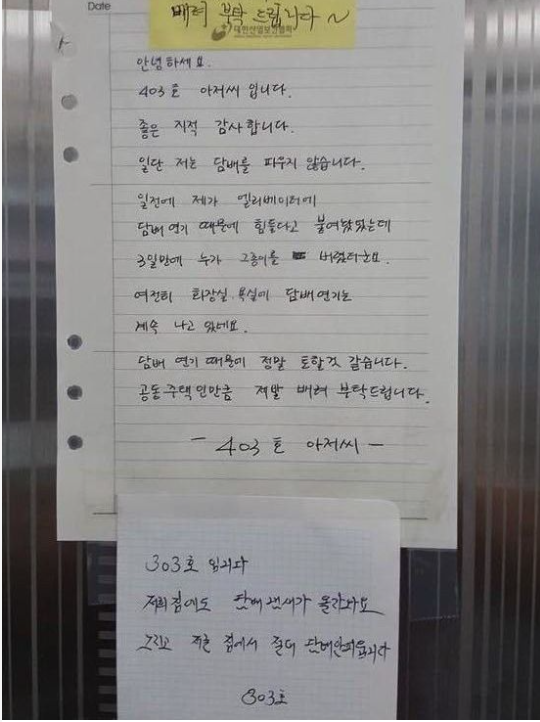 Date
배려 부탁 드립니다 ~
대한산업보건협회
안녕하세요.
403호 아저씨 입니다.
좋은 지적 감사합니다.
일단 저는 담배를 피우지 않습니다.
일전에 제가 엘리베이터에
담배연기 때문에 힘들다고 붙여놨었는데
3일만에 누가 그종이를 버렸더군요.
여전히 화장실.욕실에 담배연기는
계속 나고 있네요.
담배 연기때문에 정말 토할것 같습니다.
공동주택인만큼 제발 배려 부탁드립니다.
- 403호 아저씨 -
303호 입니다
저희집에도 담배냄새가 올라와요
그리고 저흰 집에서 절대 담배안피웁니다
303호